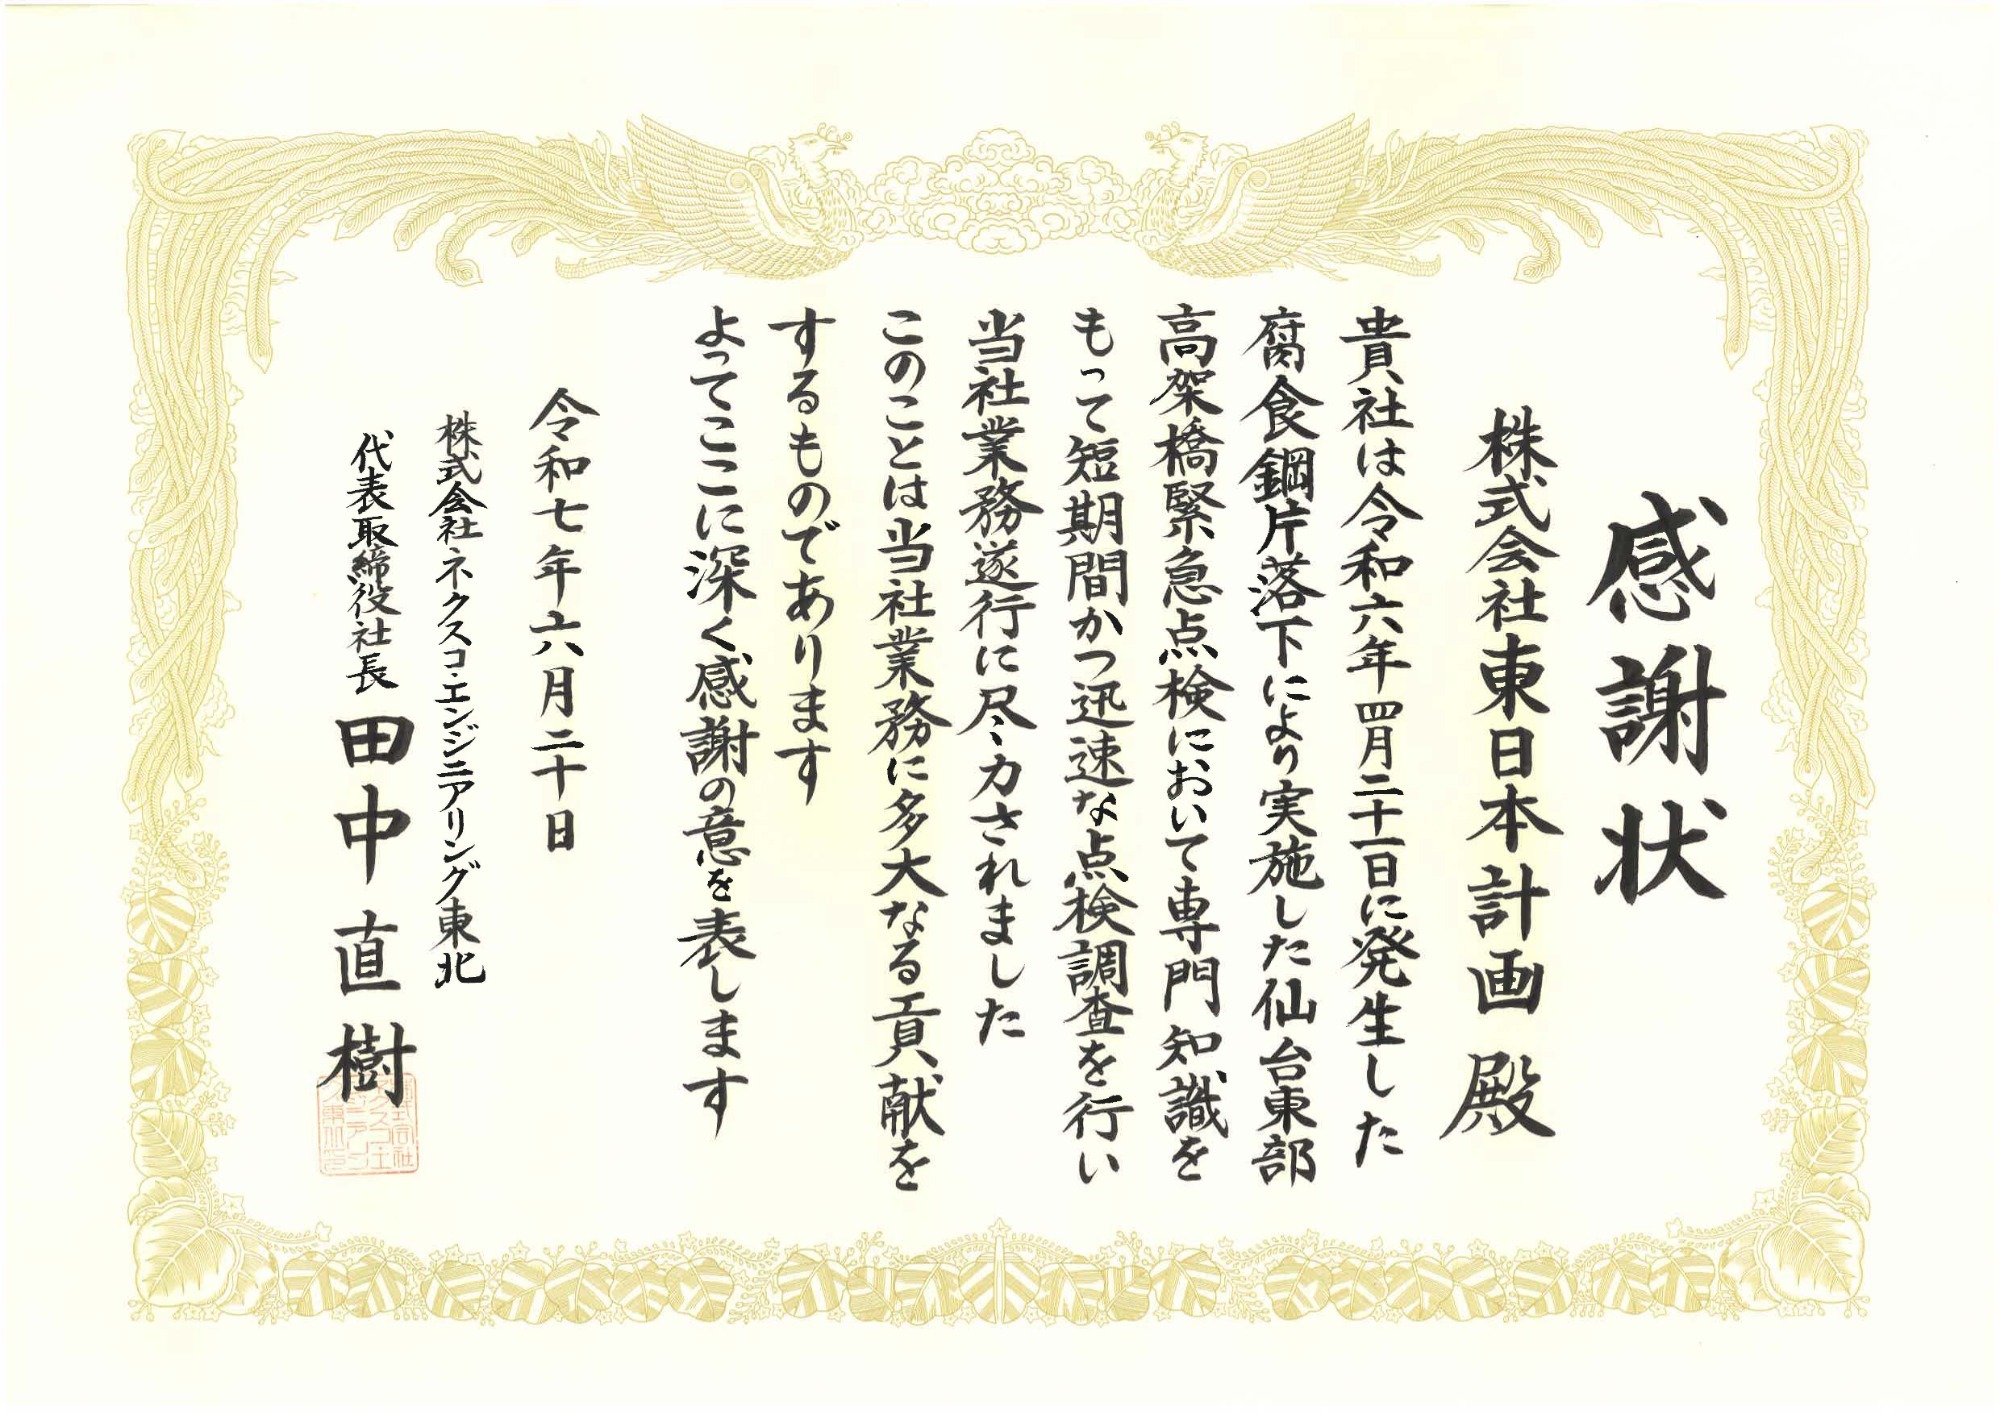 感謝状
株式会社東日本計画 殿
貴社は令和六年四月二十一日に発生した
腐食鋼片落下により実施した仙台東部
高架橋緊急点検において専門知識を
もって短期間かつ迅速な点検調査を行い
当社業務遂行に尽力されました
このことは当社業務に多大なる貢献を
するものであります
よってここに深く感謝の意を表します
令和七年六月二十日
株式会社ネクスコ・エンジニアリング東北
代表取締役社長 田中直樹